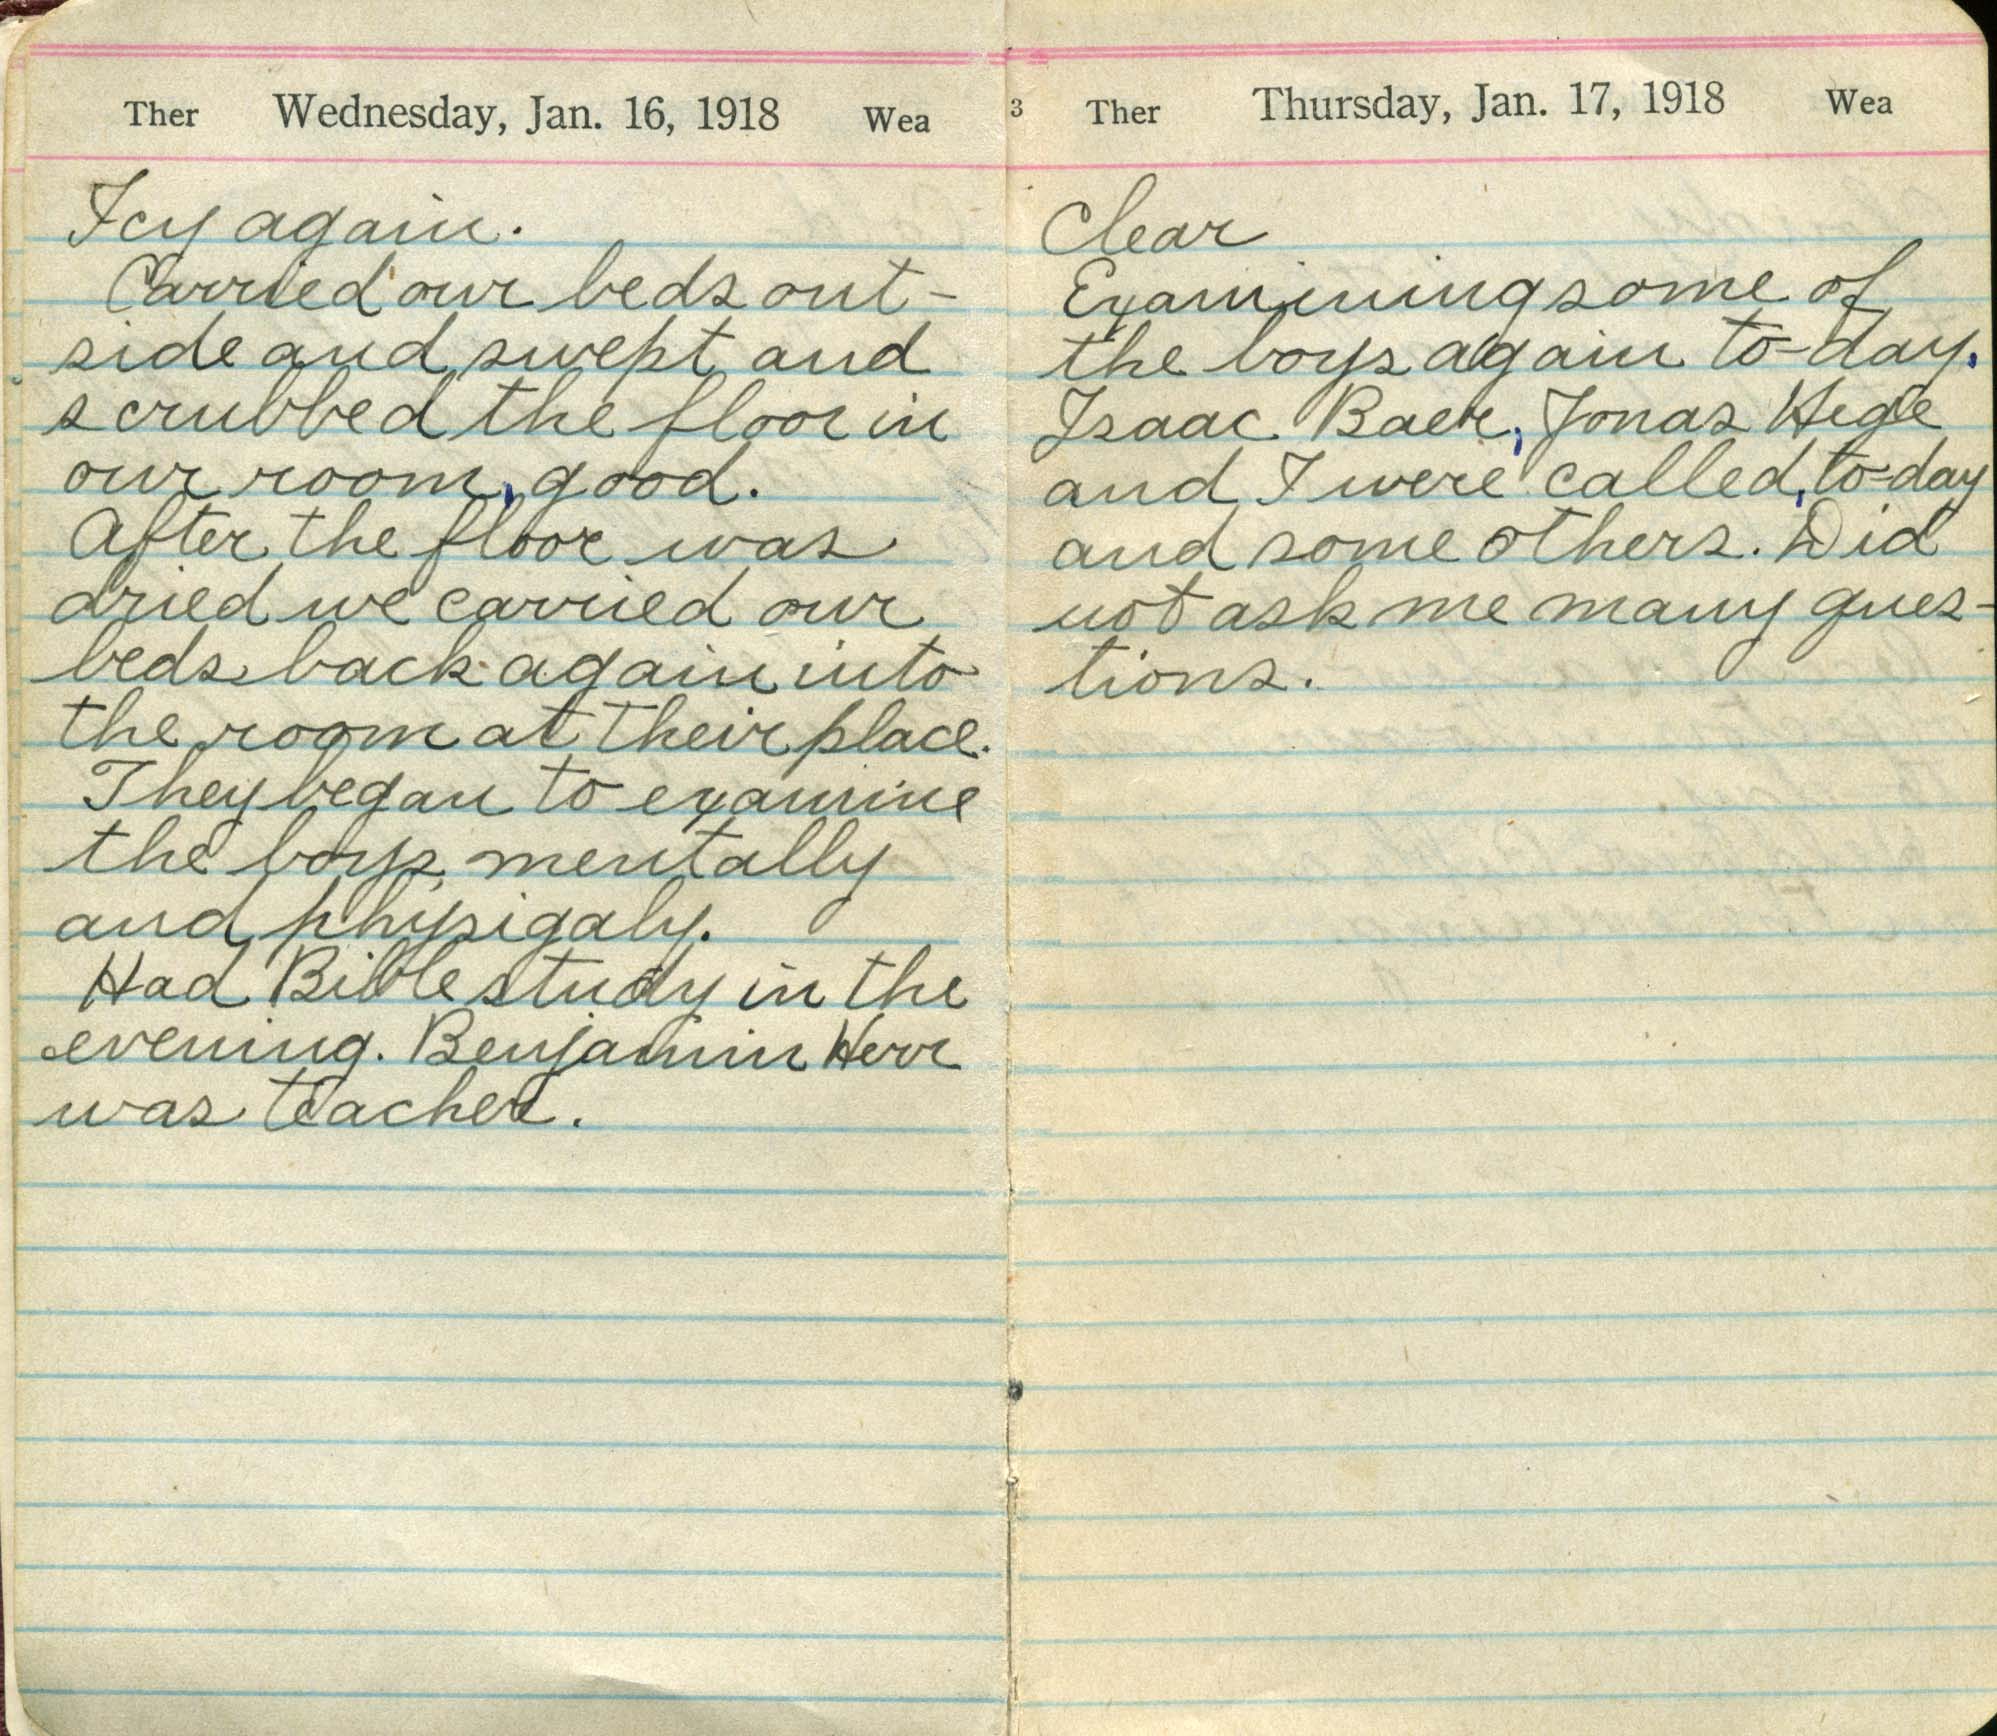 Ther Wednesday, Jan. 16, 1918 Wea
Icy again.
Carried our beds out-
side and swept and
scrubbed the floor in
our room, good.
After the floor was
dried we carried our
beds back again into
the room at their place.
They began to examine
the boys mentally
and physigaly.
Had Bible study in the
evening. Benjamin Herr
was teacher.
3 Ther Thursday, Jan. 17, 1918 Wea
Clear
Examining some of
the boys again to-day.
Isaac Baer, Jonas Hege
and I were called, to-day
and some others. Did
not ask me many ques-
tions.